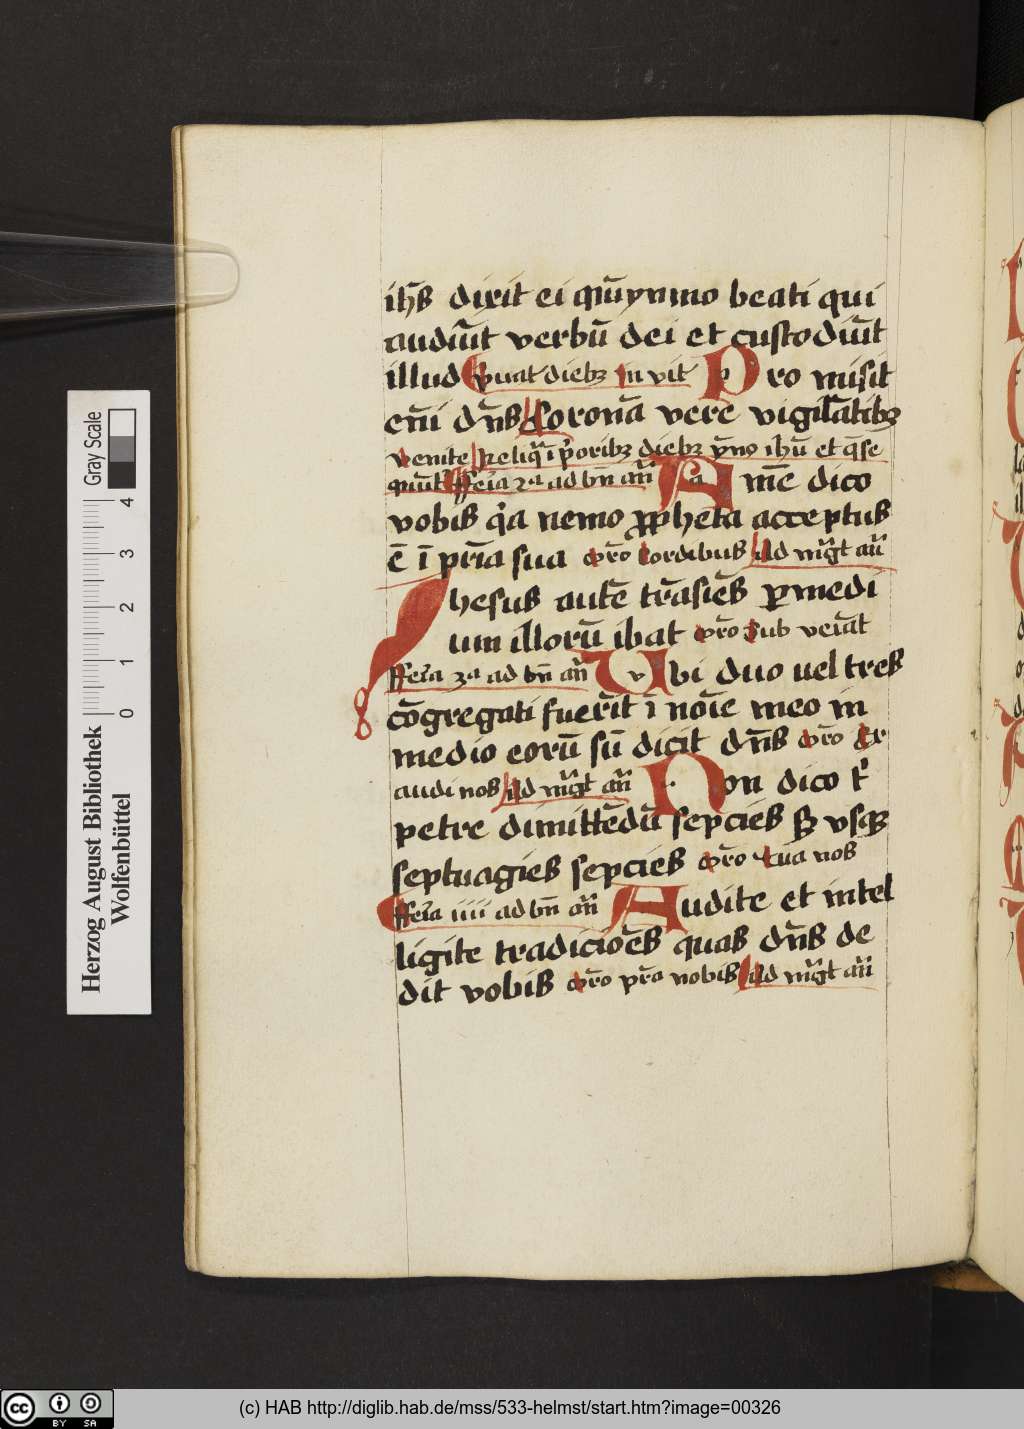 ih̄s dixit ei qūymmo beati qui
audiūt verbū dei et custodiūt
illud Quat dieb⁊ In vit̄ Pro misit
em̄ dn̄s Coronā vere vigilātibꝫ
venite Reliq̄ ī p̄oribꝫ diebꝫ ym̄o ihū et q̄se
quūt ffer̄a 2ª ad bn̄ an̄ Amē dico
vobis qͥa nemo ꝓpheta acceptus
ē ī pr̄ia sua Or̄o Cordibus Ad mgͣt an̄
Ihesus autē trāsiēs ꝑ medi
um illorū ibat Or̄o Sub veiāt
ffer̄a 3ª ad bn̄ an̄ Ubi duo uel tres
cōgregati fuer̄it ī noīe meo in
medio eorū sū dicit dn̄s Or̄o Er
audi nos Ad mgͣt an̄ Non dico tͥ
petre dimittēdū sepcies sꝫ vsqꝫ
septuagies sepcies Or̄o Tua nos
ffer̄a iiii ad bn̄ an̄ Audite et intel
ligite tradiciōes quas dn̄s de
dit vobis Or̄o pr̄o nobis Ad mgͣt an̄
Herzog August Bibliothek
Wolfenbüttel
Gray Scale
0 1 2 3 4
cc BY SA
(c) HAB http://diglib.hab.de/mss/533-helmst/start.htm?image=00326